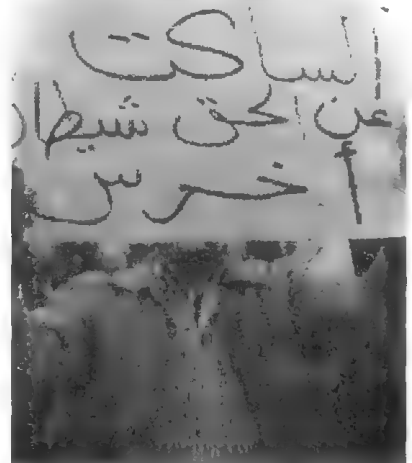 الساكت
عن الحق شيطان
أخرس